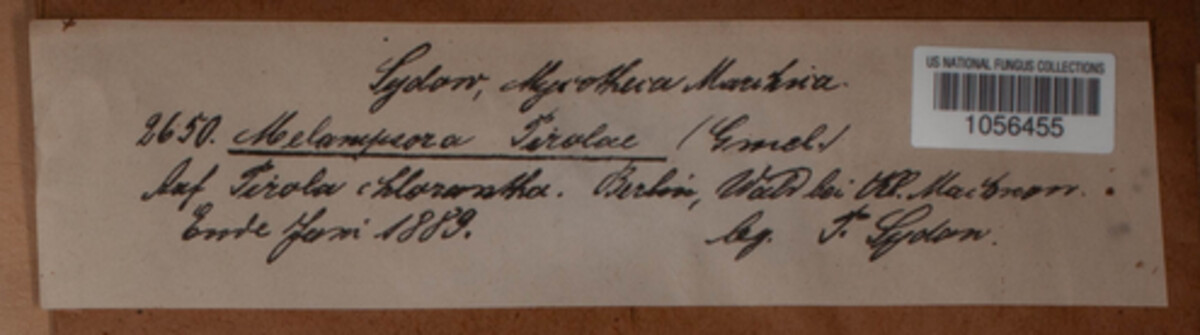 Sydow, Mycotheca Marchica.
US NATIONAL FUNGUS COLLECTIONS
1056455
2650. Melampsora Pirolae (Gmel.)
Auf Pirola chlorantha. Berlin, Wald bei Kl. Machnow.
Ende Juni 1889. leg. P. Sydow.